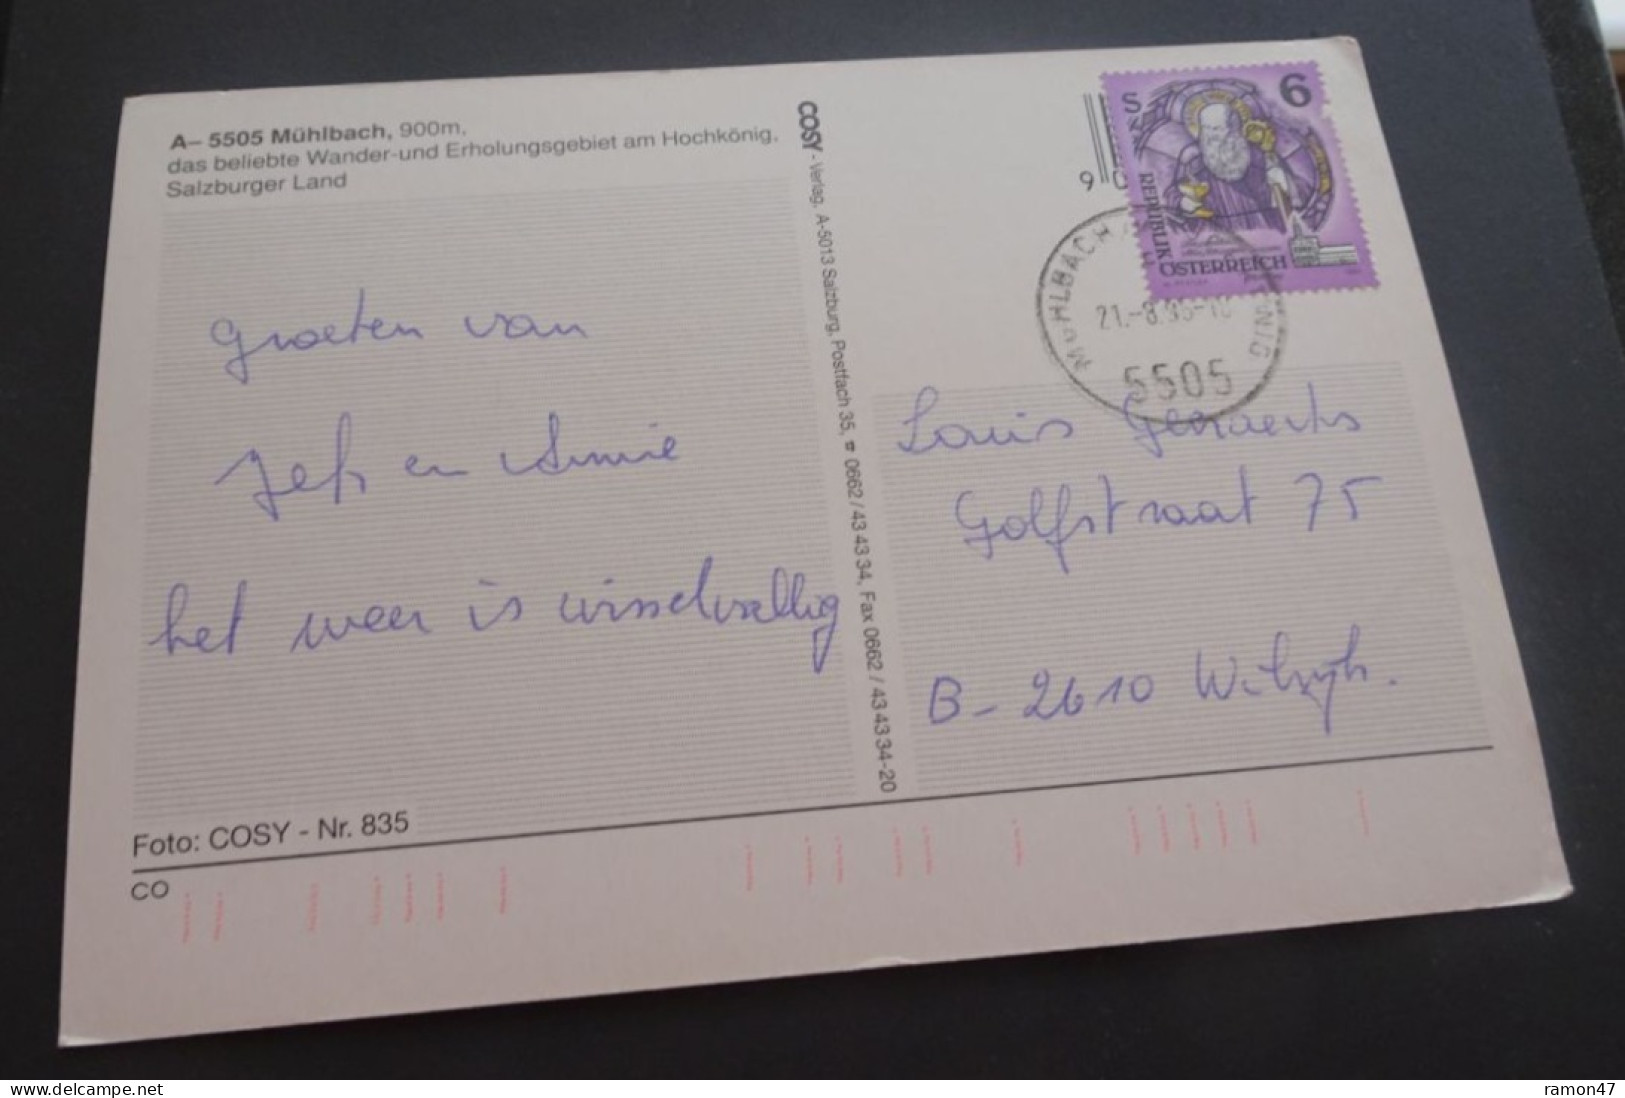 A– 5505 Mühlbach, 900m,
das beliebte Wander-und Erholungsgebiet am Hochkönig,
Salzburger Land
Groeten van
Jef en Annie
het weer is wisselvallig
Foto: COSY - Nr. 835
CO
COSY - Verlag, A-5013 Salzburg, Postfach 35, ☎ 0662/43 43 34, Fax 0662/43 43 34-20
S 6
REPUBLIK
ÖSTERREICH
9
MÜHLBACH
21.-8.
5505
Louis Geeraerts
Golfstraat 75
B-2610 Wilrijk.
www.delcampe.net
ramon47